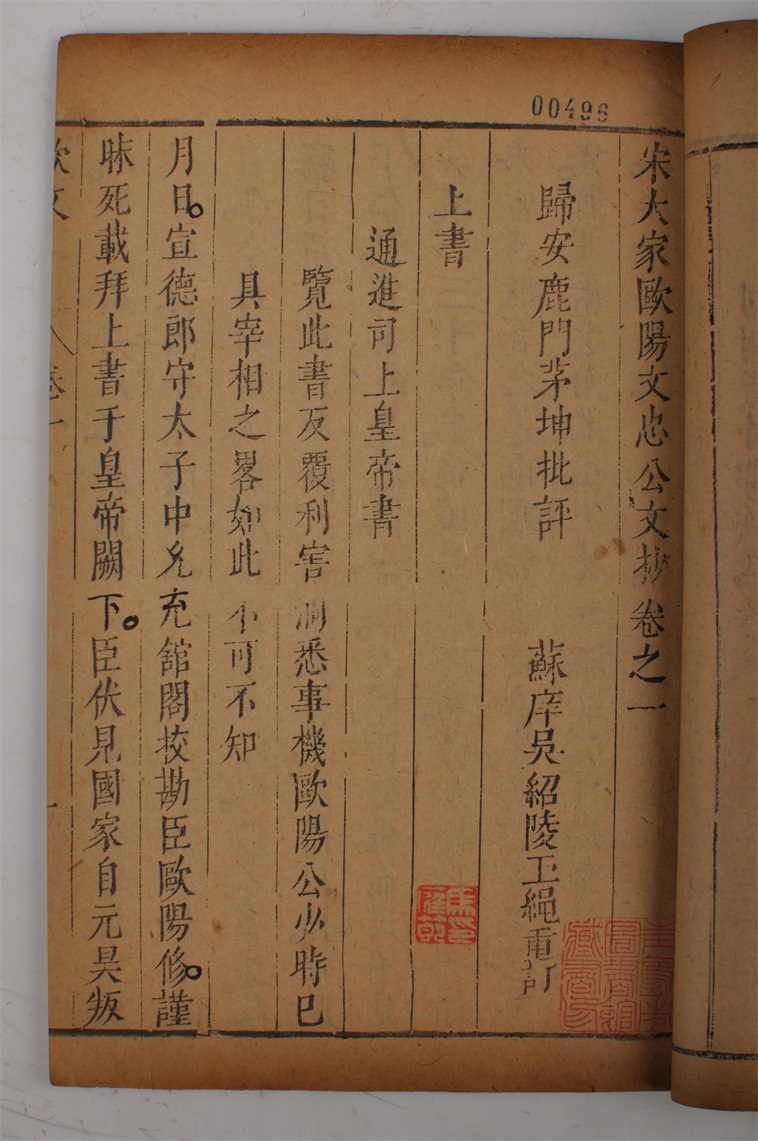 00496
宋大家歐陽文忠公文抄卷之一
歸安鹿門茅坤批評
蘇庠吳紹陵玉繩重訂
上書
通進司上皇帝書
覽此書反覆利害洞悉事機歐陽公少時已
具宰相之畧如此不可不知
月日宣德郎守太子中允充舘閣挍勘臣歐陽修謹
昧死載拜上書于皇帝闕下臣伏見國家自元昊叛
歐文
卷一
一